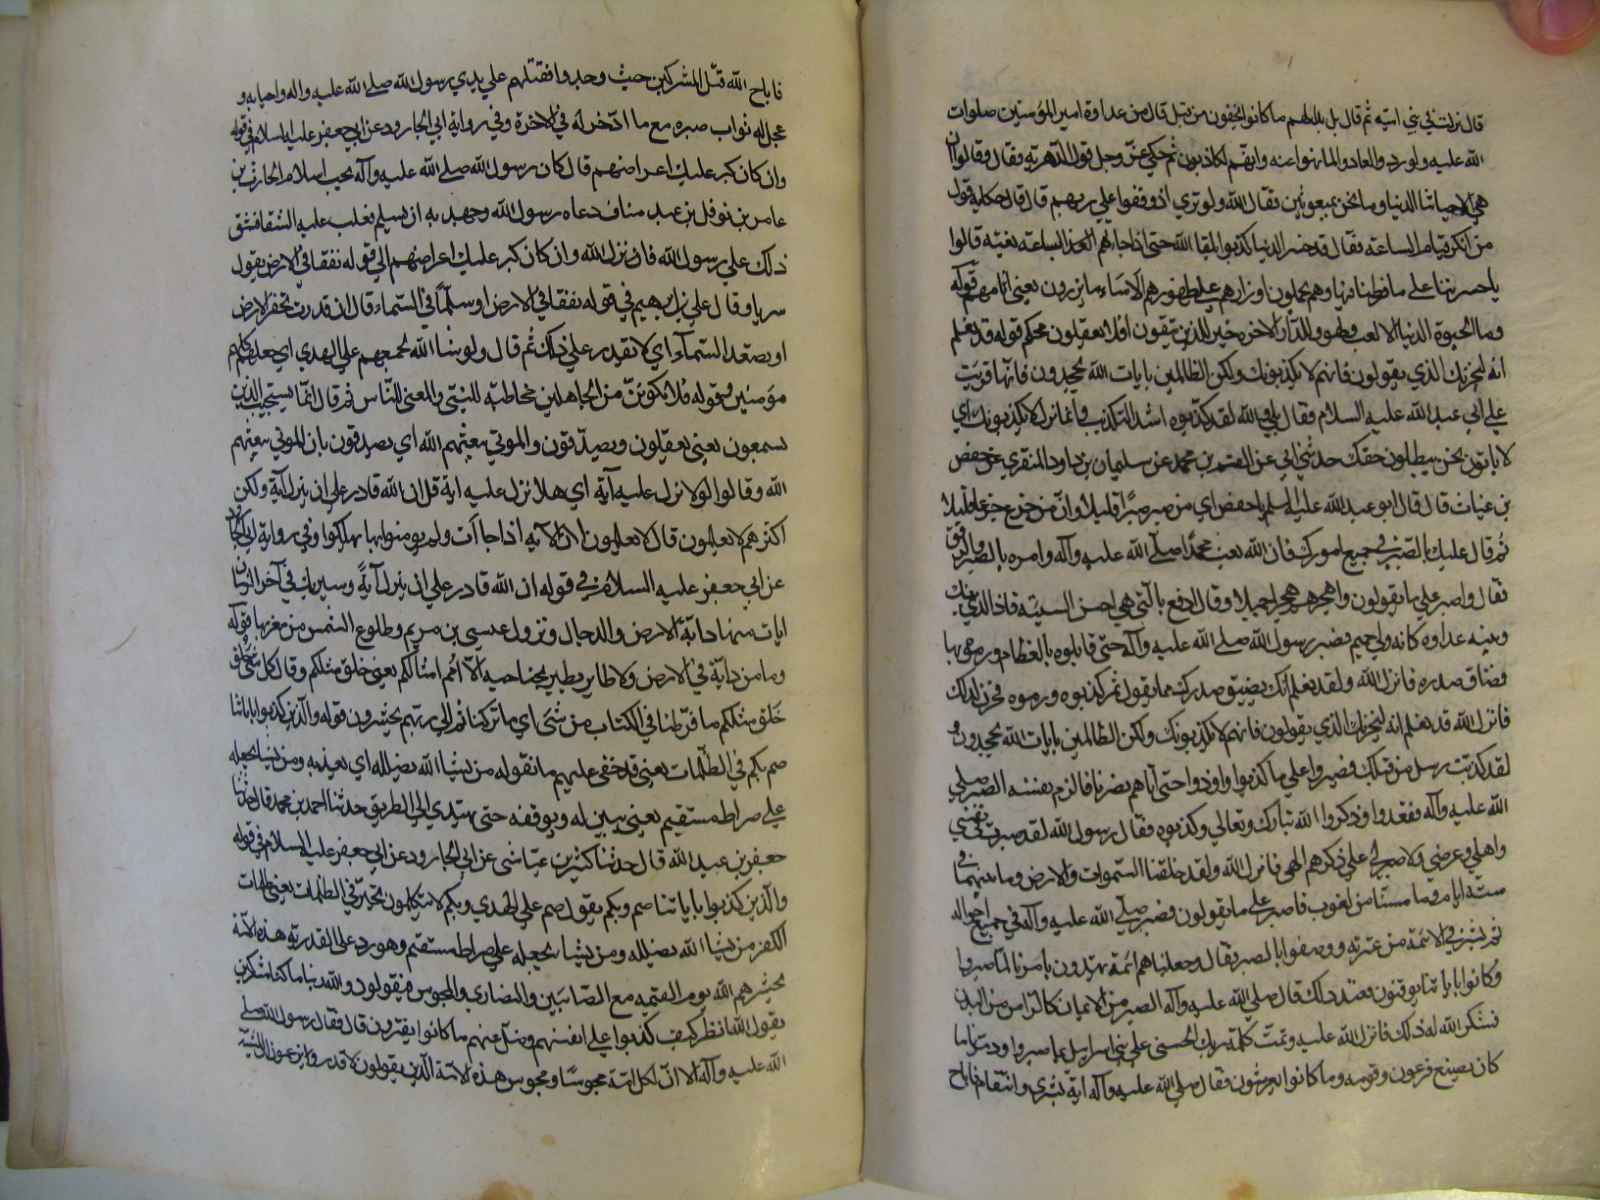 قال نزلت في بني امية ثم قال بل بدا لهم ما كانوا يخفون من قبل قال من عداوة امير المؤمنين صلوات
الله عليه ولو ردوا لعادوا لما نهوا عنه وانهم لكاذبون ثم حكي عز وجل قول الدهرية فقال وقالوا ان
هي الا حياتنا الدنيا وما نحن بمبعوثين فقال الله ولو تري اذ وقفوا علي ربهم قال قال حكاية قول
من انكر قيام الساعة فقال قد خسر الذين كذبوا بلقاء الله حتي اذا جاءتهم الساعة بغتة قالوا
يا حسرتنا علي ما فرطنا فيها وهم يحملون اوزارهم علي ظهورهم الا ساء ما يزرون يعني اثامهم قوله
وما الحيوة الدنيا الا لعب ولهو وللدار الاخرة خير للذين يتقون افلا يعقلون محكم قوله قد نعلم
انه ليحزنك الذي يقولون فانهم لا يكذبونك ولكن الظالمين بايات الله يجحدون فانها قريت
علي ابي عبد الله عليه السلام فقال بلي والله لقد كذبوه اشد التكذيب وانما نزل لا يكذبونك اي
لا ياتون بحق يبطلون حقك حدثني ابي عن القسم بن محمد عن سليمان بن داود المنقري عن حفص
بن غياث قال قال ابو عبد الله عليه السلم يا حفص ان من صبر صبرا قليلا وان من جزع جزع قليلا
ثم قال عليك بالصبر في جميع امورك فان الله بعث محمدا صلي الله عليه وآله وامره بالصبر والرفق
فقال واصبر علي ما يقولون واهجرهم هجرا جميلا وقال ادفع بالتي هي احسن السيئة فاذا الذي بينك
وبينه عداوة كانه ولي حميم فصبر رسول الله صلي الله عليه وآله حتي قابلوه بالعظام ورموه بها
فضاق صدره فانزل الله ولقد نعلم انك يضيق صدرك مما يقولون ثم كذبوه ورموه فحزن لذلك
فانزل الله قد نعلم انه ليحزنك الذي يقولون فانهم لا يكذبونك ولكن الظالمين بايات الله يجحدون و
لقد كذبت رسل من قبلك فصبروا علي ما كذبوا واوذوا حتي اتاهم نصرنا فالزم نفسه الصبر صلي
الله عليه وآله فقعدوا وذكروا الله تبارك وتعالي وكذبوه فقال رسول الله لقد صبرت في نفسي
واهلي وعرضي ولا صبر لي علي ذكرهم الهي فانزل الله ولقد خلقنا السموات والارض وما بينهما في
ستة ايام وما مسنا من لغوب فاصبر علي ما يقولون فصبر صلي الله عليه وآله في جميع احواله
ثم بشر في الائمة من عترته ووصفوا بالصبر فقال وجعلناهم ائمة يهتدون بامرنا لما صبروا
وكانوا باياتنا يوقنون فعند ذلك قال صلي الله عليه وآله الصبر من الايمان كالراس من البدن
فشكر الله له ذلك فانزل الله عليه وتمت كلمة ربك الحسني علي بني اسرايل بما صبروا ودمرنا ما
كان يصنع فرعون وقومه وما كانوا يعرشون فقال صلي الله عليه وآله اية بشري وانتقام فاباح
فاباح الله قتل المشركين حيث وجدوا فقتلهم علي يدي رسول الله صلي الله عليه واله واحبابه و
عجل له ثواب صبره مع ما ادخر له في الاخرة وفي رواية ابي الجارود عن ابي جعفر عليه السلام في قوله
وان كان كبر عليك اعراضهم قال كان رسول الله صلي الله عليه وآله يحب اسلام الحارث بن
عامر بن نوفل بن عبد مناف دعاه رسول الله وجهد به ان يسلم فغلب عليه الشقا فشق
ذلك علي رسول الله فانزل الله وان كان كبر عليك اعراضهم الي قوله نفقا في الارض يقول
سربا وقال علي بن ابرهيم في قوله نفقا في الارض او سلما في السماء قال ان قدرت تحفر الارض
او تصعد السماء اي لا تقدر علي ذلك ثم قال ولو شاء الله لجمعهم علي الهدي اي جعلهم كلهم
مؤمنين وقوله فلا تكونن من الجاهلين مخاطبة للنبي والمعني للناس ثم قال انما يستجيب الذين
يسمعون يعني يعقلون ويصدقون والموتي يبعثهم الله اي يصدقون بان الموتي يبعثهم
الله وقالوا لولا نزل عليه آية اي هلا نزل عليه اية قل ان الله قادر علي ان ينزل آية ولكن
اكثرهم لا يعلمون قال لا يعلمون ان الآية اذا جاءت ولم يومنوا بها يهلكوا وفي رواية ابي الجارود
عن ابي جعفر عليه السلام في قوله ان الله قادر علي ان ينزل آية وسيريك في آخر الزمان
ايات منها دابة الارض والدجال ونزول عيسي بن مريم وطلوع الشمس من مغربها قوله
وما من دابة في الارض ولا طاير يطير بجناحيه الا امم امثالكم يعني خلق مثلكم وقال كل شئ خلق
خلق مثلكم ما فرطنا في الكتاب من شئ اي ما تركنا ثم الي ربهم يحشرون قوله والذين كذبوا باياتنا
صم بكم في الظلمات يعني قد خفي عليهم ما تقوله من يشاء الله يضلله اي يعذبه ومن يشا يجعله
علي صراط مستقيم يعني يبين له ويوفقه حتي يهتدي الي الطريق حدثنا احمد بن محمد قال حدثنا
جعفر بن عبد الله قال حدثنا كثير بن عياش عن ابي الجارود عن ابي جعفر عليه السلام في قوله
والذين كذبوا باياتنا صم وبكم يقول صم علي الهدي وبكم لا يتكلمون بخير في الظلمات يعني ظلمات
الكفر من يشا الله يضلله ومن يشا يجعله علي صراط مستقيم وهو رد علي القدرية هذه الامة
يحشرهم الله يوم القيمة مع الصابئين والنصاري والمجوس فيقولون والله ربنا ما كنا مشركين
يقول الله انظر كيف كذبوا علي انفسهم وضل عنهم ما كانوا يفترون قال فقال رسول الله صلي
الله عليه وآله الا ان لكل امة مجوسا ومجوس هذه الامة الذين يقولون لا قدر ويزعمون ان المشية